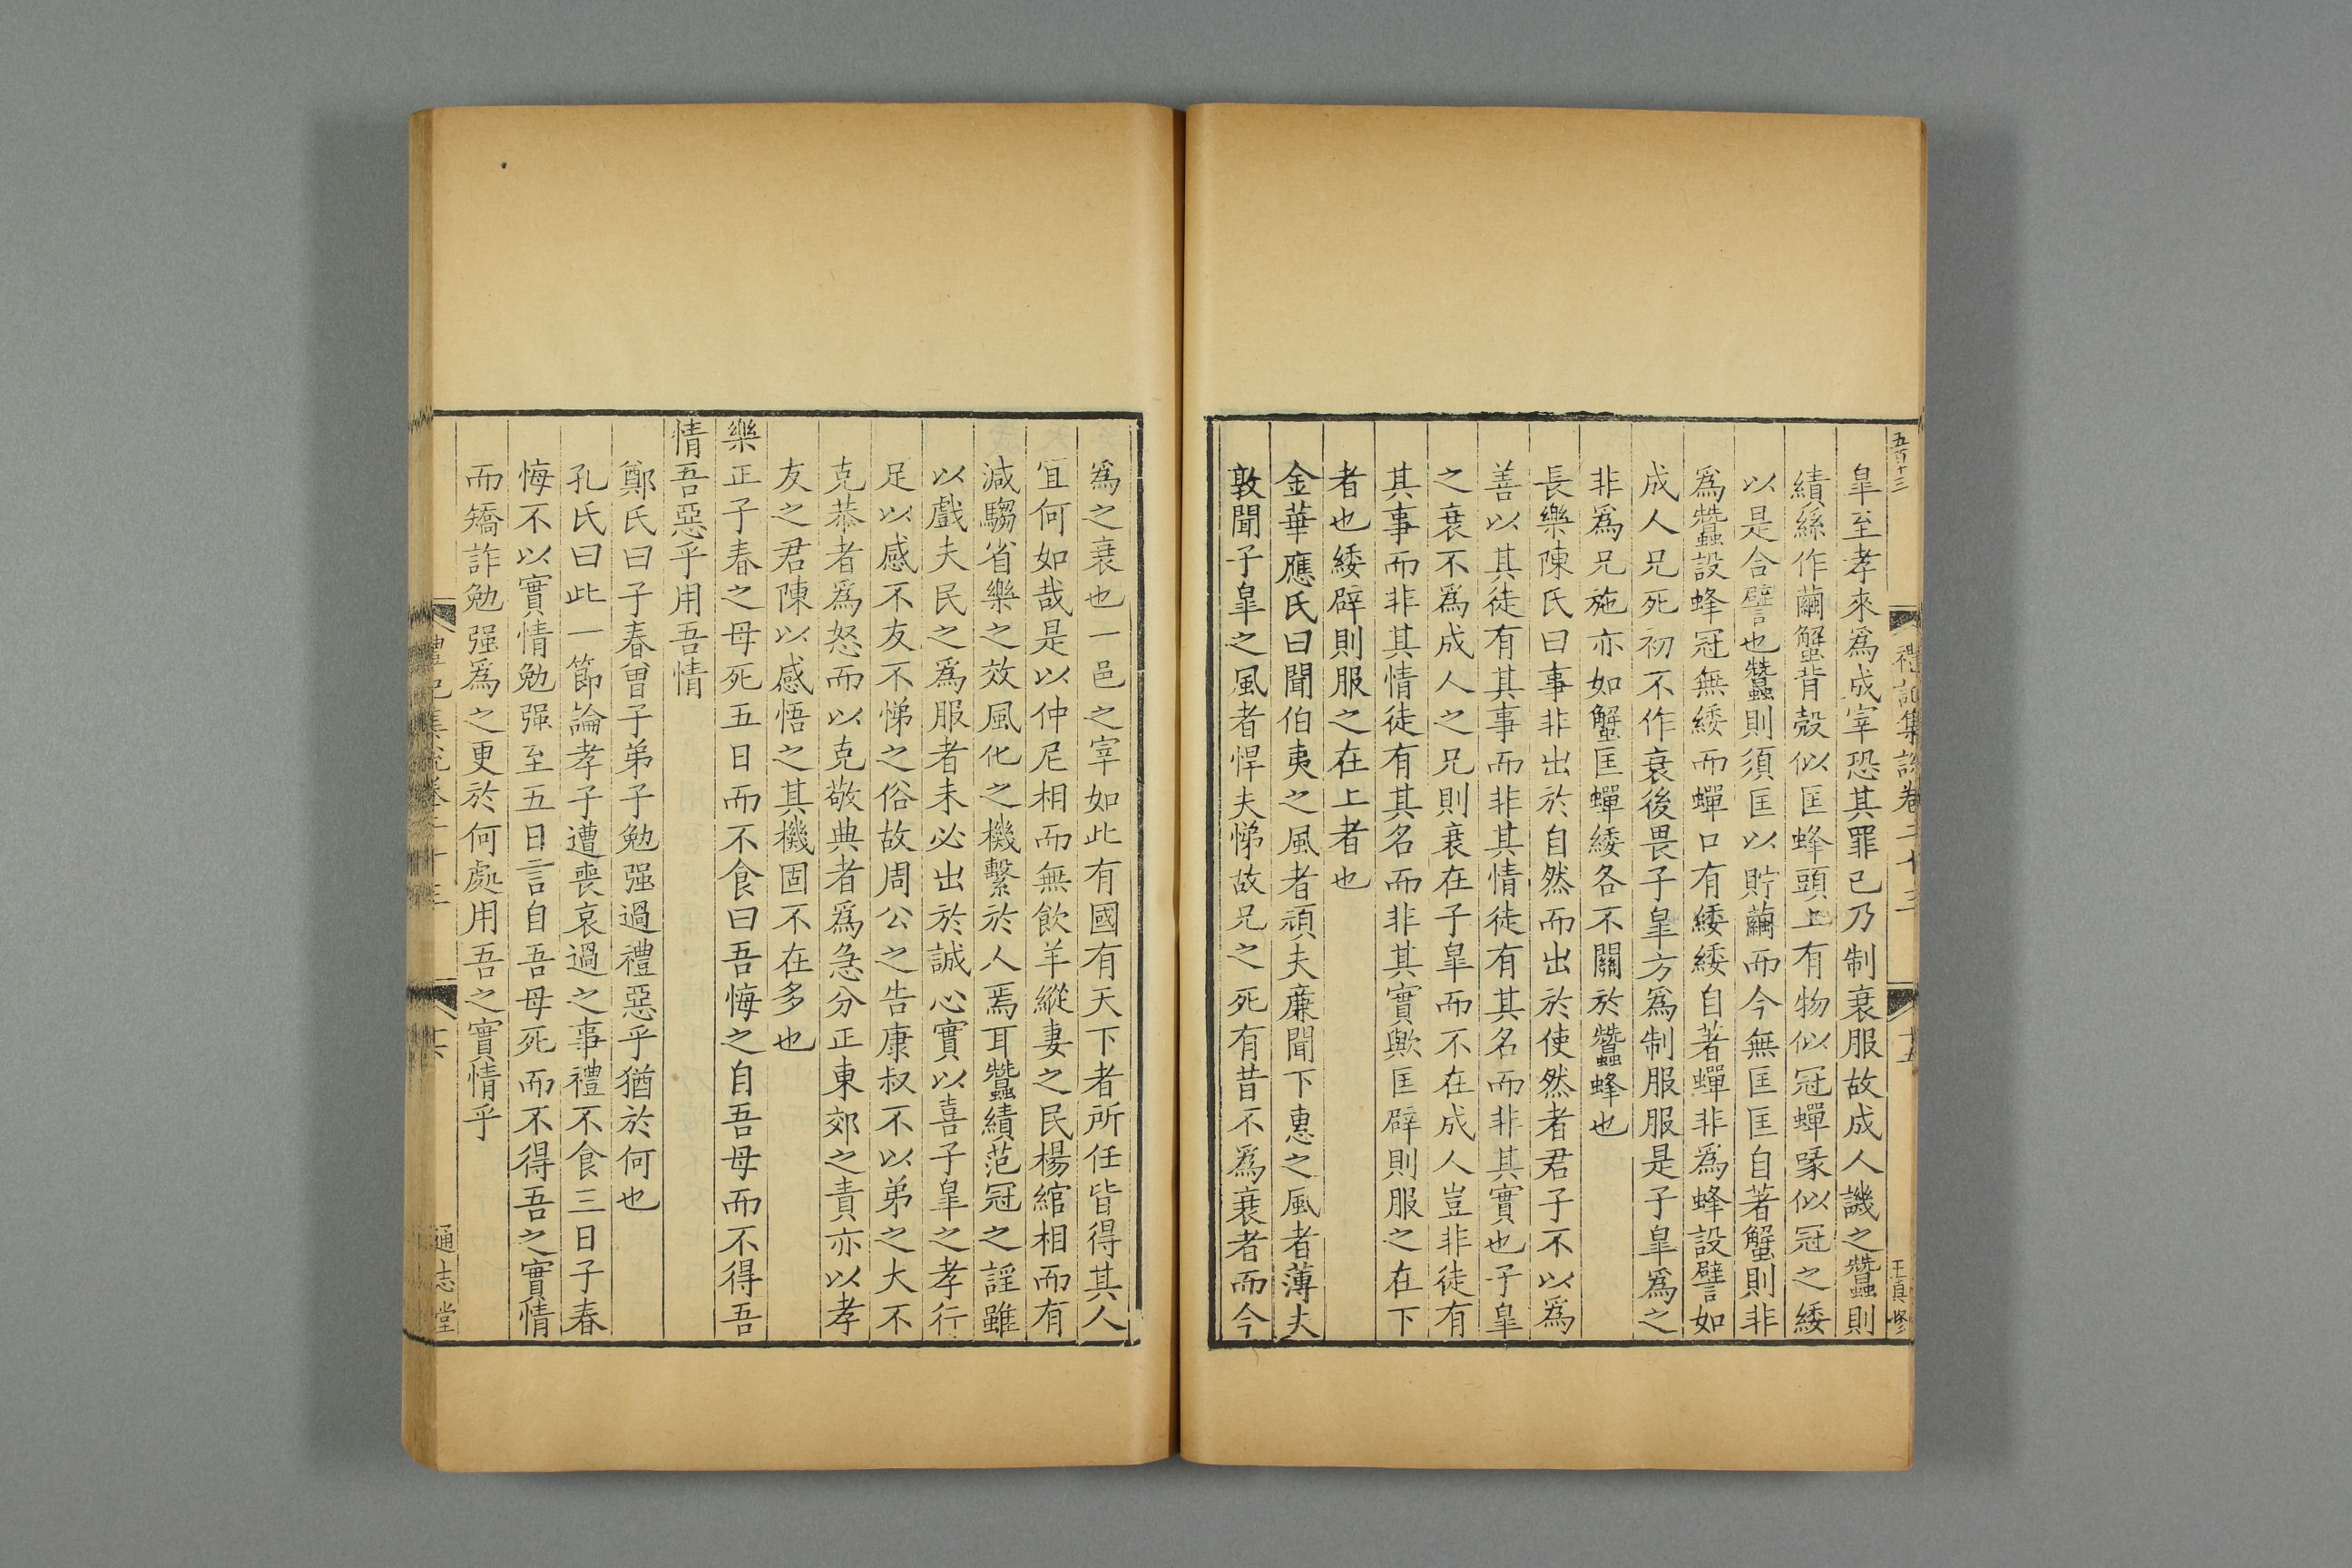 五百十三
禮記集說卷二十三
十五
王真修
皐至孝來爲成宰恐其罪已乃制衰服故成人譏之蠶則
績絲作繭蟹背殼似匡蜂頭上有物似冠蟬喙似冠之緌
以是合譬也蠶則須匡以貯繭而今無匡匡自著蟹則非
爲蠶設蜂冠無緌而蟬口有緌緌自著蟬非爲蜂設譬如
成人兄死初不作衰後畏子皐方爲制服服是子皐爲之
非爲兄施亦如蟹匡蟬緌各不關於蠶蜂也
長樂陳氏曰事非出於自然而出於使然者君子不以爲
善以其徒有其事而非其情徒有其名而非其實也子皐
之衰不爲成人之兄則衰在子皐而不在成人豈非徒有
其事而非其情徒有其名而非其實歟匡辟則服之在下
者也緌辟則服之在上者也
金華應氏曰聞伯夷之風者頑夫廉聞下惠之風者薄夫
敦聞子皐之風者悍夫悌故兄之死有昔不爲衰者而今
爲之衰也一邑之宰如此有國有天下者所任皆得其人
宜何如哉是以仲尼相而無飲羊縱妻之民楊綰相而有
減騶省樂之效風化之機繫於人焉耳蠶績范冠之謡雖
以戲夫民之爲服者未必出於誠心實以喜子皐之孝行
足以感不友不悌之俗故周公之告康叔不以弟之大不
克恭者爲怒而以克敬典者爲急分正東郊之責亦以孝
友之君陳以感悟之其機固不在多也
樂正子春之母死五日而不食曰吾悔之自吾母而不得吾
情吾惡乎用吾情
鄭氏曰子春曾子弟子勉强過禮惡乎猶於何也
孔氏曰此一節論孝子遭喪哀過之事禮不食三日子春
悔不以實情勉强至五日言自吾母死而不得吾之實情
而矯詐勉强爲之更於何處用吾之實情乎
禮記集說卷二十三
十六
通志堂